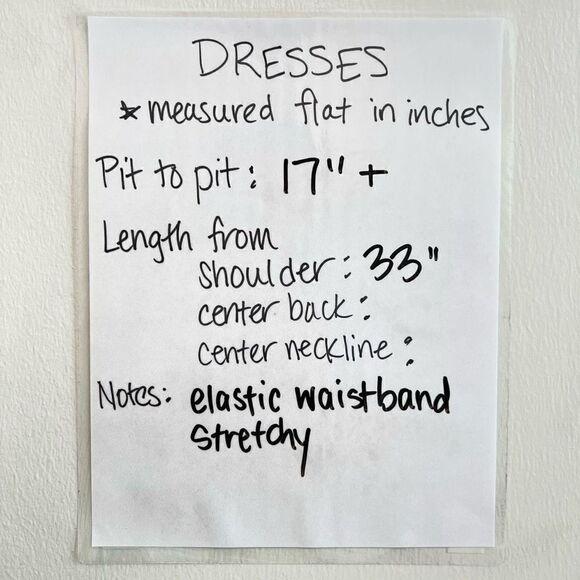 DRESSES
* measured flat in inches
Pit to pit: 17" +
Length from
shoulder: 33"
center back:
center neckline:
Notes: elastic waistband
stretchy